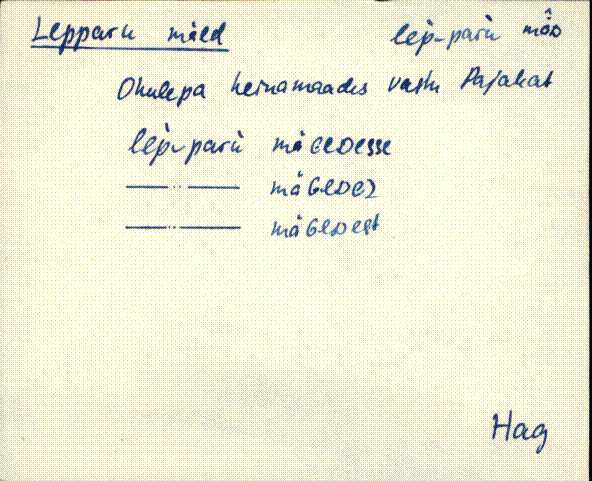 Lepparu mäed lèp-parù mä̂D
Ohulepa heinamaades vastu Pajakat
lèp-parù mäGeDesse
—"— mäGeDeZ
—"— mäGeDest
Hag